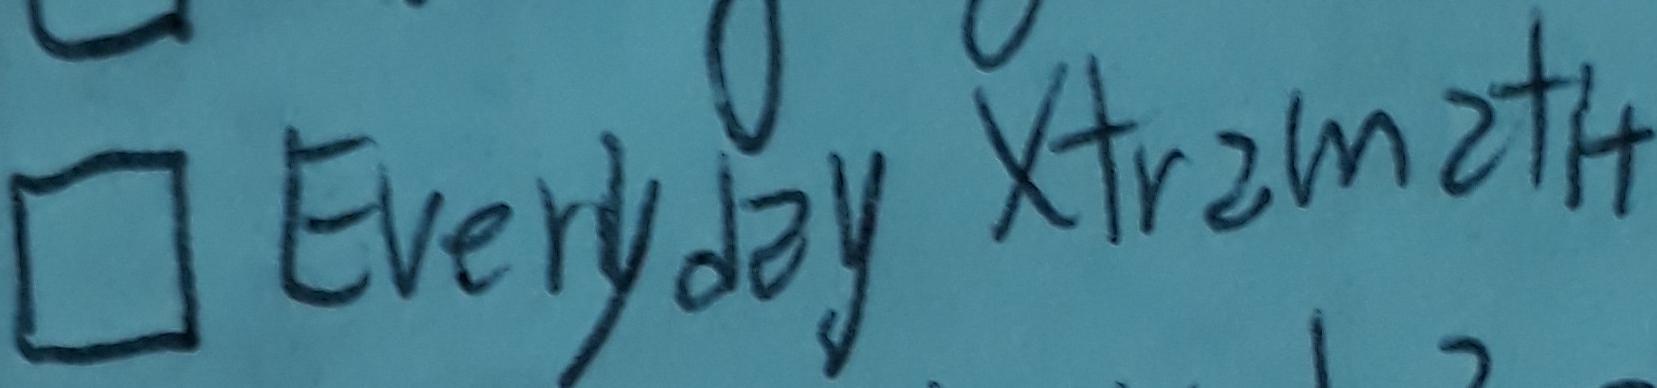 Everyday XtramatH